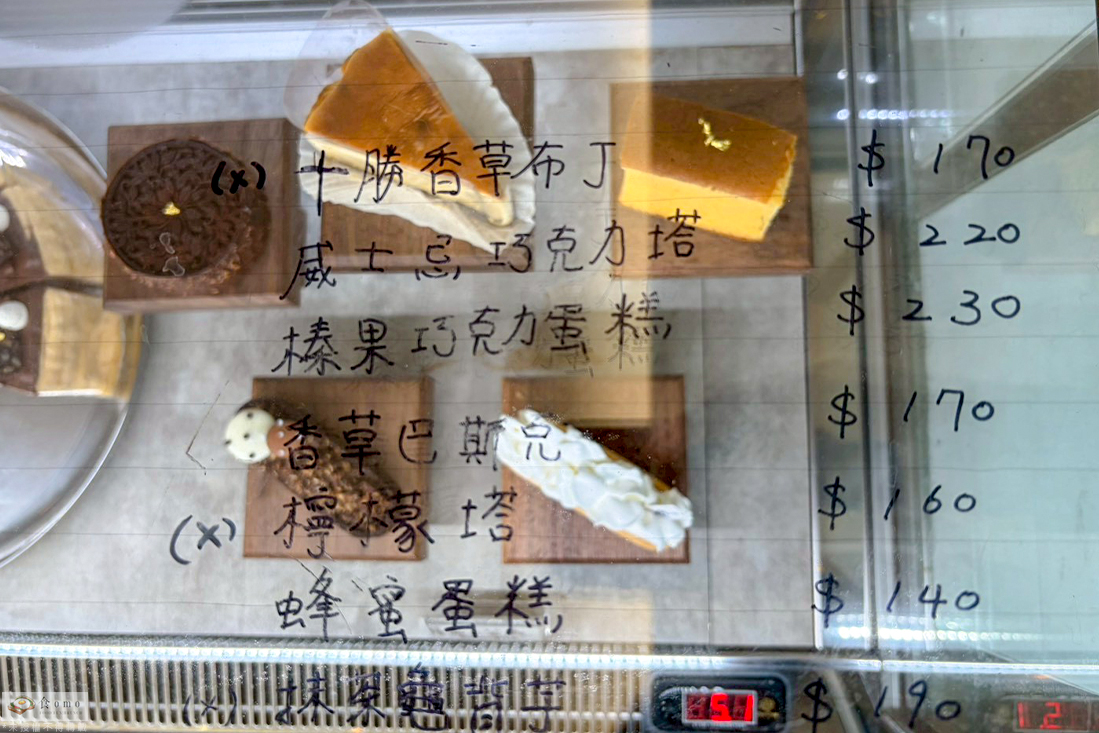 (x) 十勝香草布丁 $ 170
威士忌巧克力塔 $ 220
榛果巧克力蛋糕 $ 230
香草巴斯克 $ 170
(x) 檸檬塔 $ 160
蜂蜜蛋糕 $ 140
(x) 抹茶龜背芋 $ 190
5.1
1.2
食omo